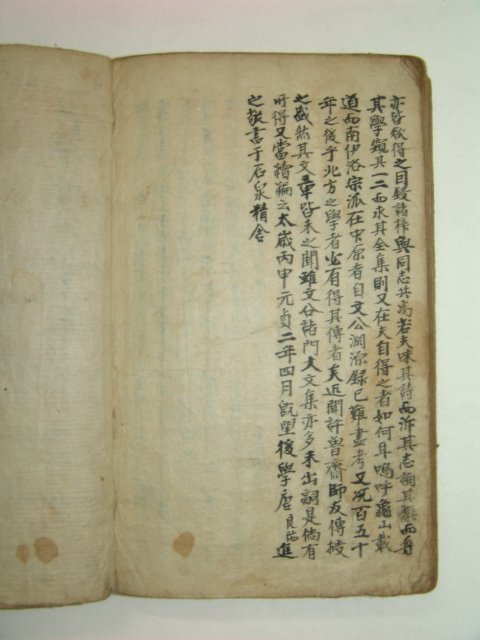 亦皆欲得之因鋟諸梓與同志共焉若夫味其詩而泝其志誦其辭而尋
其學觀其一二而求其全集則又在夫自得之者如何耳嗚呼龜山載
道而南伊洛宗派在中原者自文公淵源錄已難盡考又况百五十
年之後乎北方之學者必有得其傳者矣近聞許魯齋師友傳授
之盛然其文章皆未之聞雖文公諸門人文集亦多未出嗣是倘有
所得又當續編云太歲丙申元貞二年四月旣望後學唐良瑞進
之敬書于石泉精舍